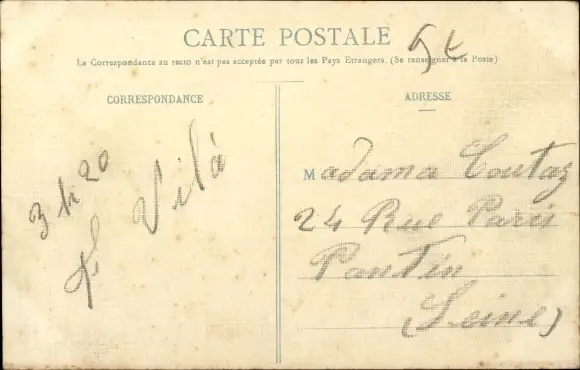 CARTE POSTALE
La Correspondance au recto n'est pas acceptée par tous les Pays Etrangers. (Se renseigner à la Poste)
CORRESPONDANCE
3 h 20
Vilà
ADRESSE
Madama Coutaz
24 Rue Paris
Pantin
(Seine)